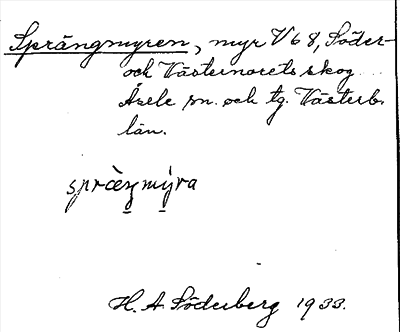 Sprängmyren, myr V 68, Söder-
och Västernorets skog
Åsele sn. och tg. Västerb.
län.
spràŋmýra
H. A. Söderberg 1933.